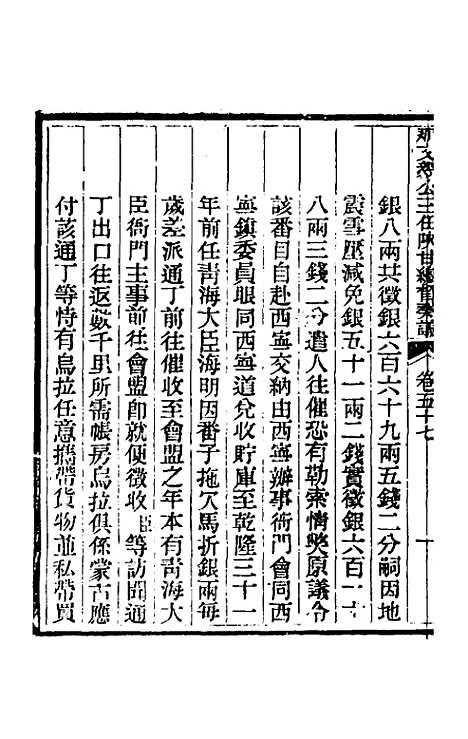 那文毅公三任陝甘總督奏議 卷五十七
銀八兩共徵銀六百六十九兩五錢二分嗣因地
震雪壓減免銀五十一兩二錢實徵銀六百一十
八兩三錢二分遣人往催恐有勒索情獘原議令
該番目自赴西寧交納由西寧辦事衙門會同西
寧鎮委員眼同西寧道兌收貯庫至乾隆三十一
年前任靑海大臣海明因番子拖欠馬折銀兩每
歲差派通丁前往催收至會盟之年本有靑海大
臣衙門主事前往會盟卽就便徵收臣等訪聞通
丁出口往返數千里所需帳房烏拉俱係蒙古應
付該通丁等恃有烏拉任意攜帶貨物並私帶買